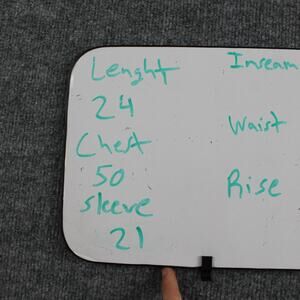 Lenght
24
Chest
50
sleeve
21
Inseam
Waist
Rise